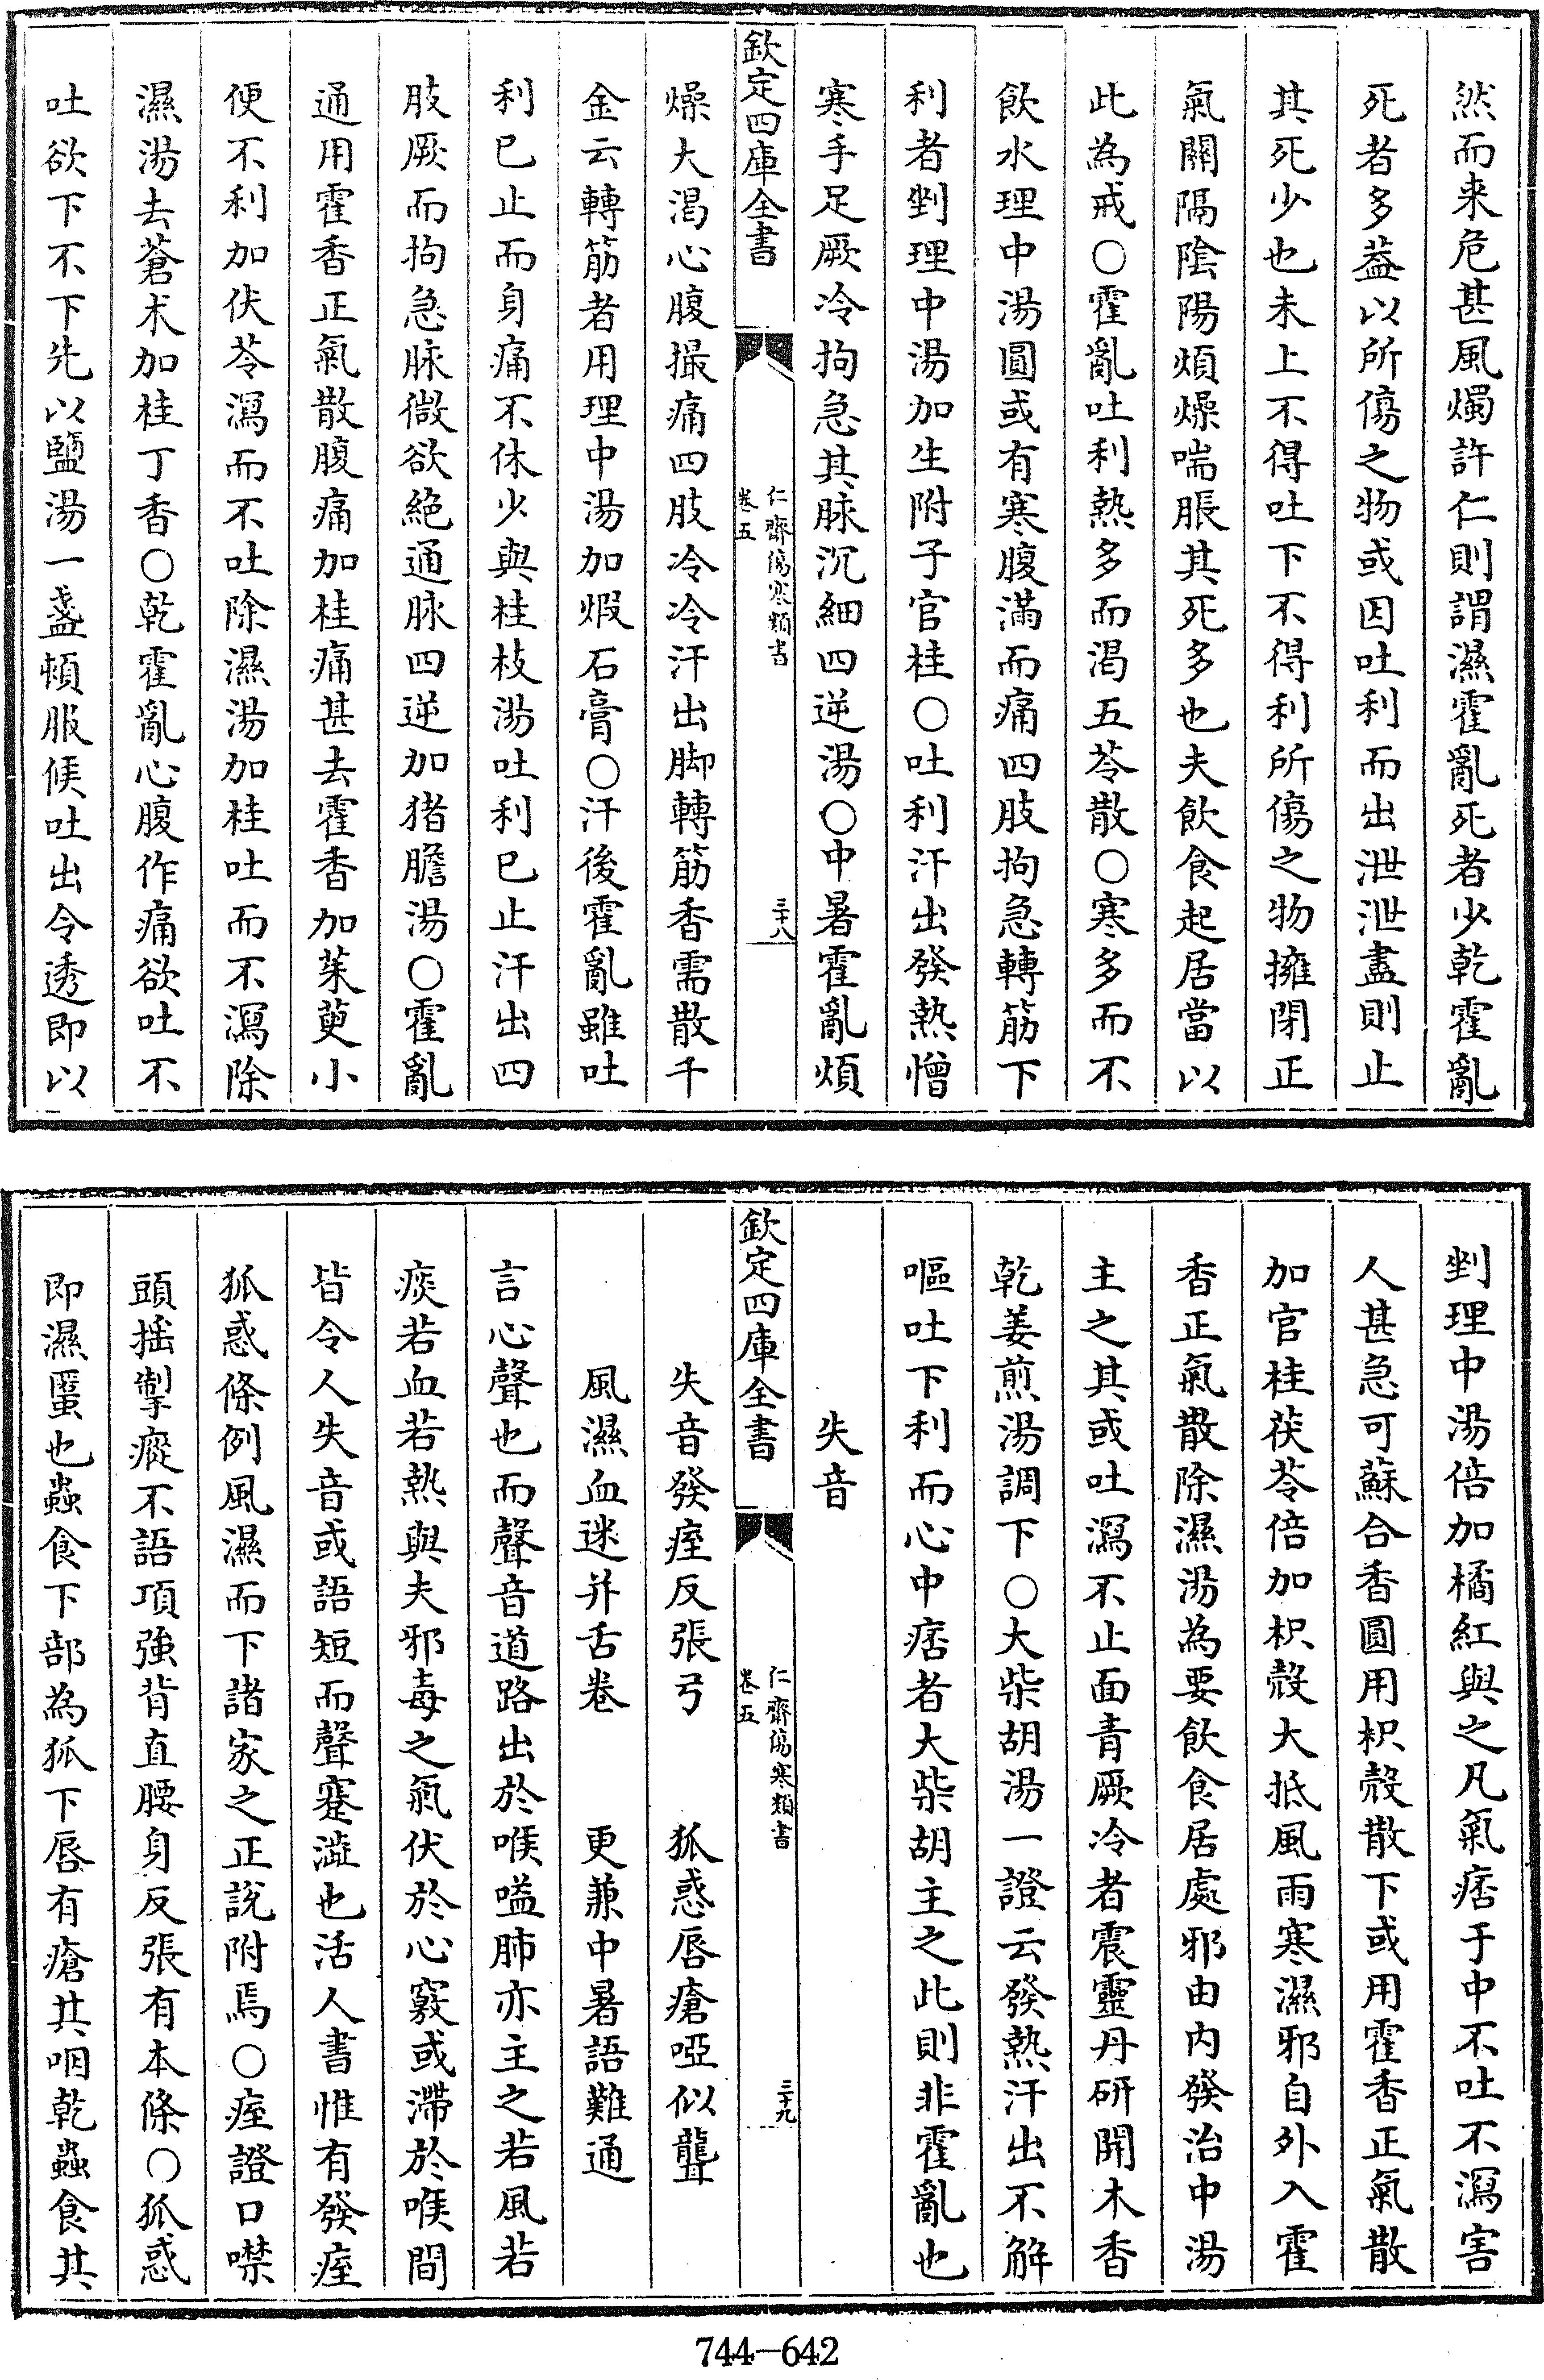 然而来危甚風燭許仁則謂濕霍亂死者少乾霍亂
死者多葢以所傷之物或因吐利而出泄泄盡則止
其死少也未上不得吐下不得利所傷之物擁閉正
氣關隔陰陽煩燥喘脹其死多也夫飲食起居當以
此為戒○霍亂吐利熱多而渴五苓散○寒多而不
飲水理中湯圓或有寒腹滿而痛四肢拘急轉筋下
利者剉理中湯加生附子官桂○吐利汗出發熱憎
寒手足厥冷拘急其脉沉細四逆湯○中暑霍亂煩
欽定四庫全書
仁齋傷寒類書
卷五
三十八
燥大渴心腹撮痛四肢冷冷汗出脚轉筋香需散千
金云轉筋者用理中湯加煆石膏○汗後霍亂雖吐
利已止而身痛不休少與桂枝湯吐利已止汗出四
肢厥而拘急脉微欲絶通脉四逆加猪膽湯○霍亂
通用霍香正氣散腹痛加桂痛甚去霍香加茱萸小
便不利加伏苓瀉而不吐除濕湯加桂吐而不瀉除
濕湯去蒼术加桂丁香○乾霍亂心腹作痛欲吐不
吐欲下不下先以鹽湯一盞頓服候吐出令透即以
剉理中湯倍加橘紅與之凡氣痞于中不吐不瀉害
人甚急可蘇合香圓用枳殻散下或用霍香正氣散
加官桂茯苓倍加枳殻大抵風雨寒濕邪自外入霍
香正氣散除濕湯為要飲食居處邪由内發治中湯
主之其或吐瀉不止面青厥冷者震靈丹研開木香
乾姜煎湯調下○大柴胡湯一證云發熱汗出不解
嘔吐下利而心中痞者大柴胡主之此則非霍亂也
失音
欽定四庫全書
仁齋傷寒類書
卷五
三十九
失音發痓反張弓 狐惑唇瘡啞似聾
風濕血迷并舌卷 更兼中暑語難通
言心聲也而聲音道路出於喉嗌肺亦主之若風若
痰若血若熱與夫邪毒之氣伏於心竅或滯於喉間
皆令人失音或語短而聲蹇澁也活人書惟有發痓
狐惑條例風濕而下諸家之正說附焉○痓證口噤
頭揺掣瘲不語項強背直腰身反張有本條○狐惑
即濕䘌也蟲食下部為狐下唇有瘡其咽乾蟲食其
744-642